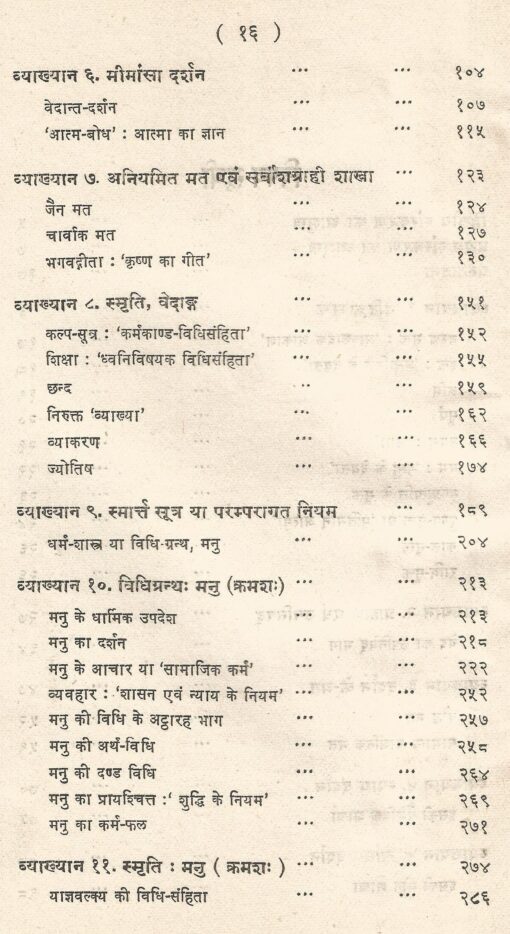 ( १६ )
व्याख्यान ६. मीमांसा दर्शन ... ... १०४
वेदान्त-दर्शन ... ... १०७
‘आत्म-बोध’ : आत्मा का ज्ञान ... ... ११५
व्याख्यान ७. अनियमित मत एवं सर्वांशग्राही शाखा ... १२३
जैन मत ... ... १२४
चार्वाक मत ... ... १२७
भगवद्गीता : ‘कृष्ण का गीत’ ... ... १३०
व्याख्यान ८. स्मृति, वेदाङ्ग ... ... १५१
कल्प-सूत्र : ‘कर्मकाण्ड-विधिसंहिता’ ... ... १५२
शिक्षा : ‘ध्वनिविषयक विधिसंहिता’ ... ... १५५
छन्द ... ... १५९
निरुक्त ‘व्याख्या’ ... ... १६२
व्याकरण ... ... १६६
ज्योतिष ... ... १७४
व्याख्यान ९. स्मार्त्त सूत्र या परम्परागत नियम ... १८९
धर्म-शास्त्र या विधि-ग्रन्थ, मनु ... ... २०४
व्याख्यान १०. विधिग्रन्थः मनु (क्रमशः) ... ... २१३
मनु के धार्मिक उपदेश ... ... २१३
मनु का दर्शन ... ... २१८
मनु के आचार या ‘सामाजिक कर्म’ ... ... २२२
व्यवहार : ‘शासन एवं न्याय के नियम’ ... ... २५२
मनु की विधि के अट्ठारह भाग ... ... २५७
मनु की अर्थ-विधि ... ... २५८
मनु की दण्ड विधि ... ... २६४
मनु का प्रायश्चित्त :‘ शुद्धि के नियम’ ... ... २६९
मनु का कर्म-फल ... ... २७१
व्याख्यान ११. स्मृति : मनु ( क्रमशः ) ... ... २७४
याज्ञवल्क्य की विधि-संहिता ... ... २८६